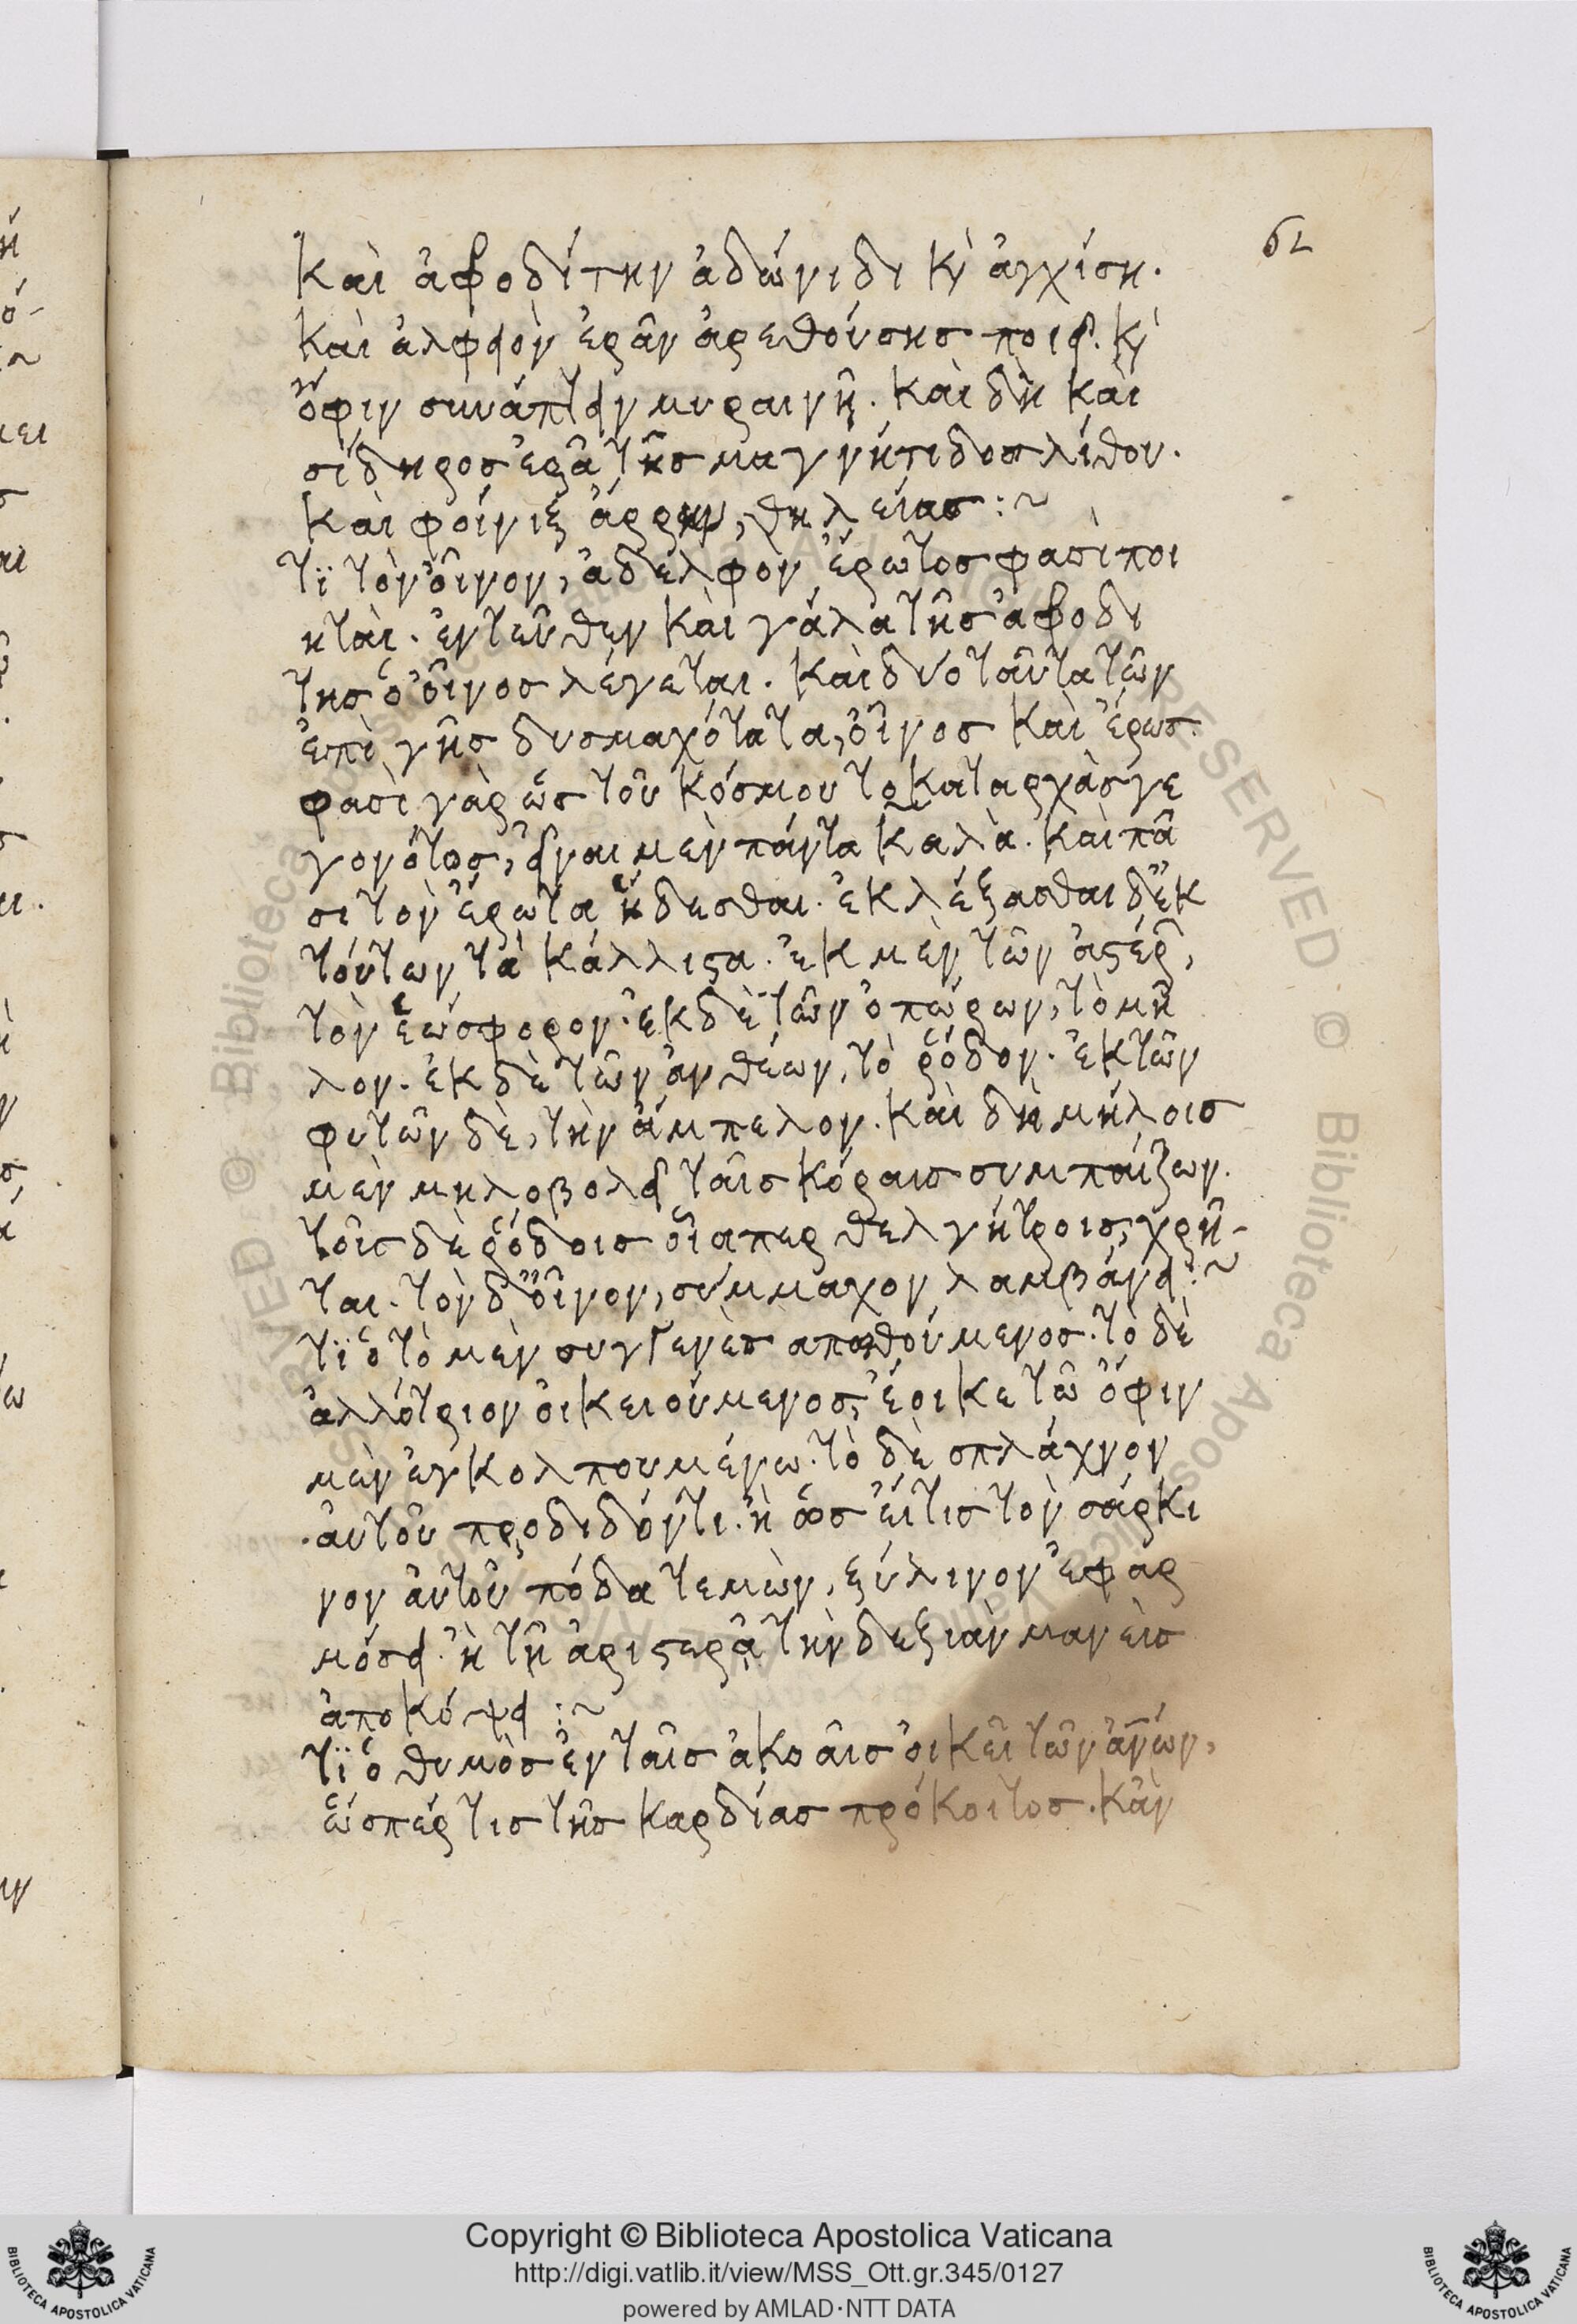 62
καὶ ἀφροδίτην ἀδώνιδι κὶ ἀγχίση.
καὶ ἀλφειὸν ἐρᾶν ἀρεθούσης ποιεῖ. κὶ
ὄφιν συνάπτειν μυραινῆ. καὶ δὴ καὶ
σίδηρος ἐρᾶ τῆς μαγνήτιδος λίθου.
καὶ φοίνιξ ἄρρην, θηλείας :~
τί τὸν οἶνον, ἀδελφὸν ἔρωτος φασὶ ποι
ηταί. ἐντεῦθεν καὶ γάλα τῆς ἀφροδι
της ὁ οἶνος λέγεται. καὶ δύο ταῦτα τῶν
ἐπὶ γῆς δυσμαχότατα, οἶνος καὶ ἔρως.
φασὶ γὰρ ὡς τοῦ κόσμου το καταρχὰς γε
γονότος, εἶναι μὲν πάντα καλὰ. καὶ πᾶ
σι τὸν ἔρωτα ἥδεσθαι. ἐκλέξασθαι δ' ἐκ
τούτων τὰ κάλλιστα. ἐκ μὲν τῶν ἀστέρ,
τὸν ἑωσφορον. ἐκ δὲ τῶν ὀπώρων, τὸ μῆ
λον. ἐκ δὲ τῶν ἀνθέων, τὸ ῥόδον. ἐκ τῶν
φυτῶν δὲ, τὴν ἄμπελον. καὶ δὴ μήλοις
μὲν μηλοβολεῖ ταῖς κόραις συμπαίζων.
τοῖς δὲ ῥόδοις οἷαπερ θελγήτροις, χρῆ-
ται. τὸν δ' οἶνον, σύμμαχον λαμβάνει :~
τί ὁ τὸ μὲν συγγενὲς απωθούμενος. τὸ δὲ
ἀλλότριον οἰκειούμενος, ἔοικε τῶ ὄφιν
μὲν ἐγκολπουμένω. τὸ δὲ σπλάχνον
αὐτοῦ προδιδόντι. ἢ ὡς εἴ τις τὸν σάρκι
νον αὐτοῦ πόδα τεμὼν, ξύλινον ἐφαρ
μόσει. ἢ τῆ ἀριστερᾶ τὴν δεξιὰν μανεὶς
ἀποκόψει :~
τί ὁ θυμὸς ἐν ταῖς ἀκοαῖς οἰκεῖ τῶν ἀνων,
ὥσπέρ τις τῆς καρδίας πρόκοιτος. κἂν
Copyright © Biblioteca Apostolica Vaticana
http://digi.vatlib.it/view/MSS_Ott.gr.345/0127
powered by AMLAD·NTT DATA